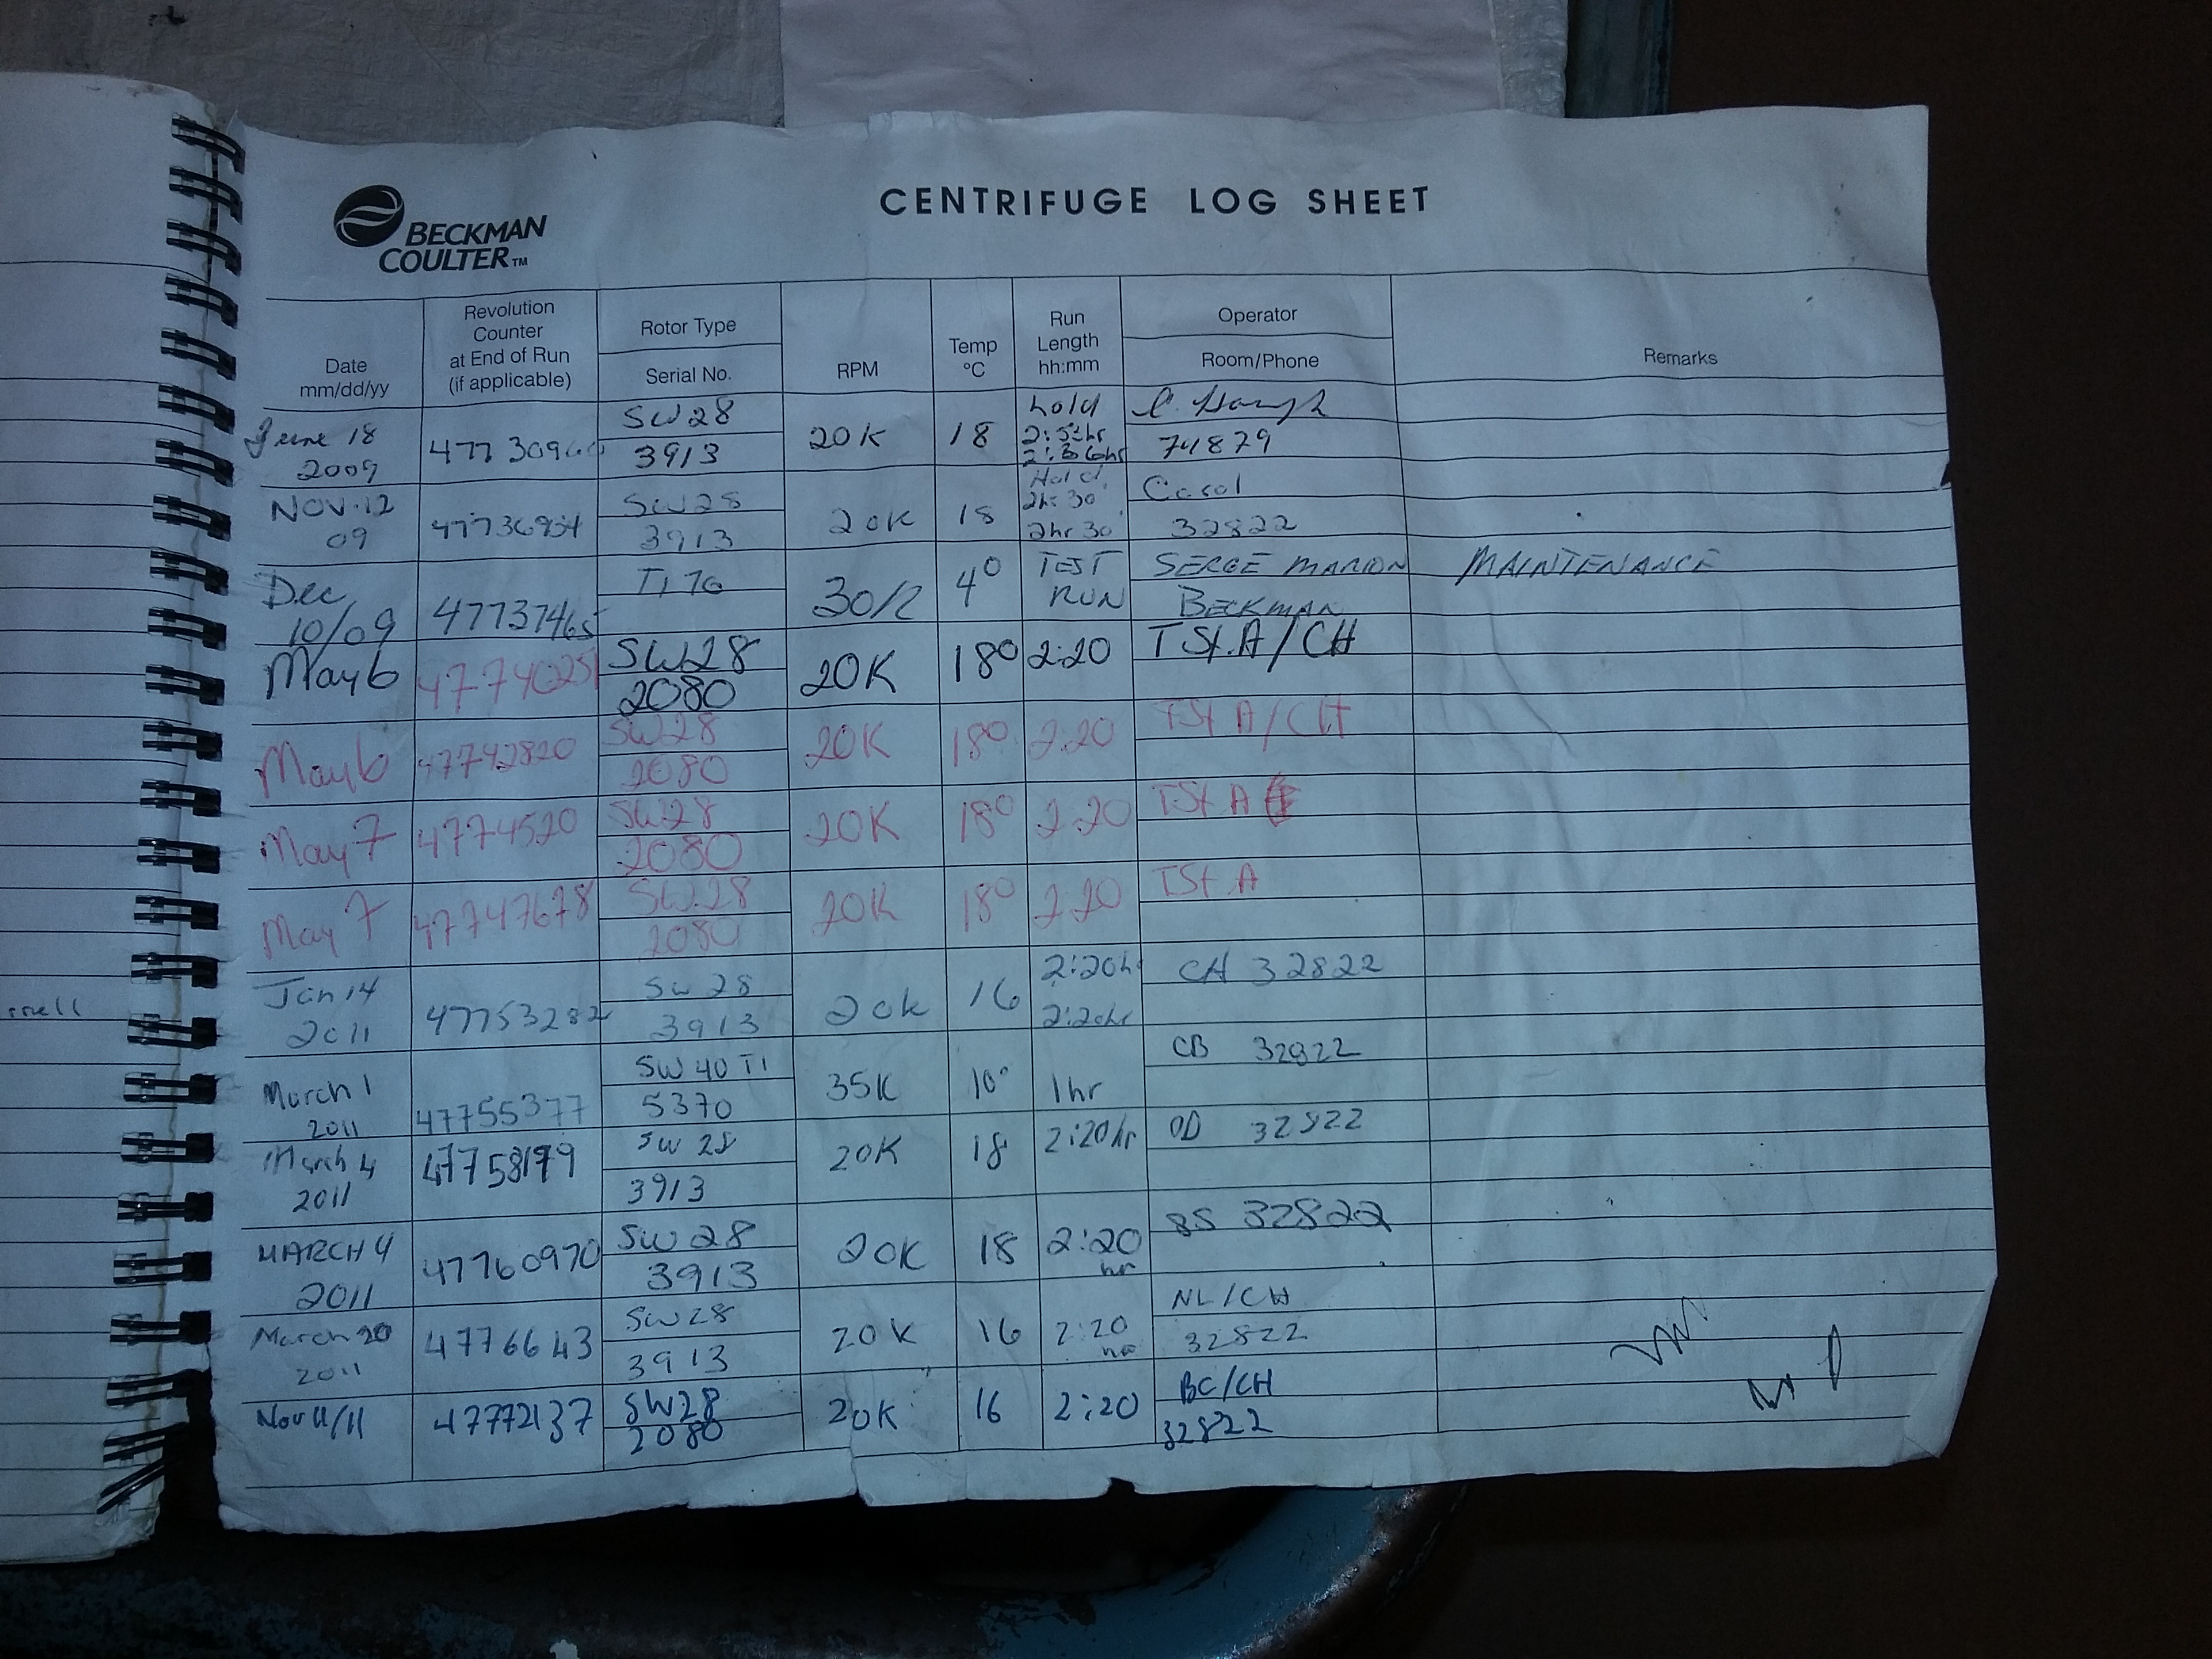 BECKMAN
COULTER™
CENTRIFUGE LOG SHEET
Date
mm/dd/yy
Revolution
Counter
at End of Run
(if applicable)
Rotor Type
Serial No.
RPM
Temp
°C
Run
Length
hh:mm
Operator
Room/Phone
Remarks
June 18
2009
SW28
3913
20K
18
hold
74879
NOV.12
09
47736954
SW28
3913
20K
18
Hold
2hr 30
2hr 30
Carol
32822
Dec
10/09
47737465
TI 70
4°
TEST
RUN
SERGE MARION
BECKMAN
MAINTENANCE
May 6
47740251
SW28
2080
20K
18°
2:20
T St. A / CH
May 6
47742820
SW28
2080
20K
18°
2:20
T St A / CH
May 7
4774520
SW28
2080
20K
18°
2:20
T St. A
May 7
47747678
SW28
2080
20K
18°
2:20
T St. A
Jan 14
2011
47753282
SW 28
3913
20K
16
2:20hr
2:20hr
CH 32822
March 1
2011
47755377
SW 40 TI
5370
35K
10°
1hr
CB 32822
March 4
2011
47758179
SW 28
3913
20K
18
2:20hr
OD 32822
MARCH 4
2011
47760970
SW 28
3913
20K
18
2:20
hr
BS 32822
March 20
2011
4776643
SW28
3913
20K
16
2:20
hr
NL/CH
32822
Nov 11/11
47772137
SW28
2080
20K
16
2:20
BC/CH
32822